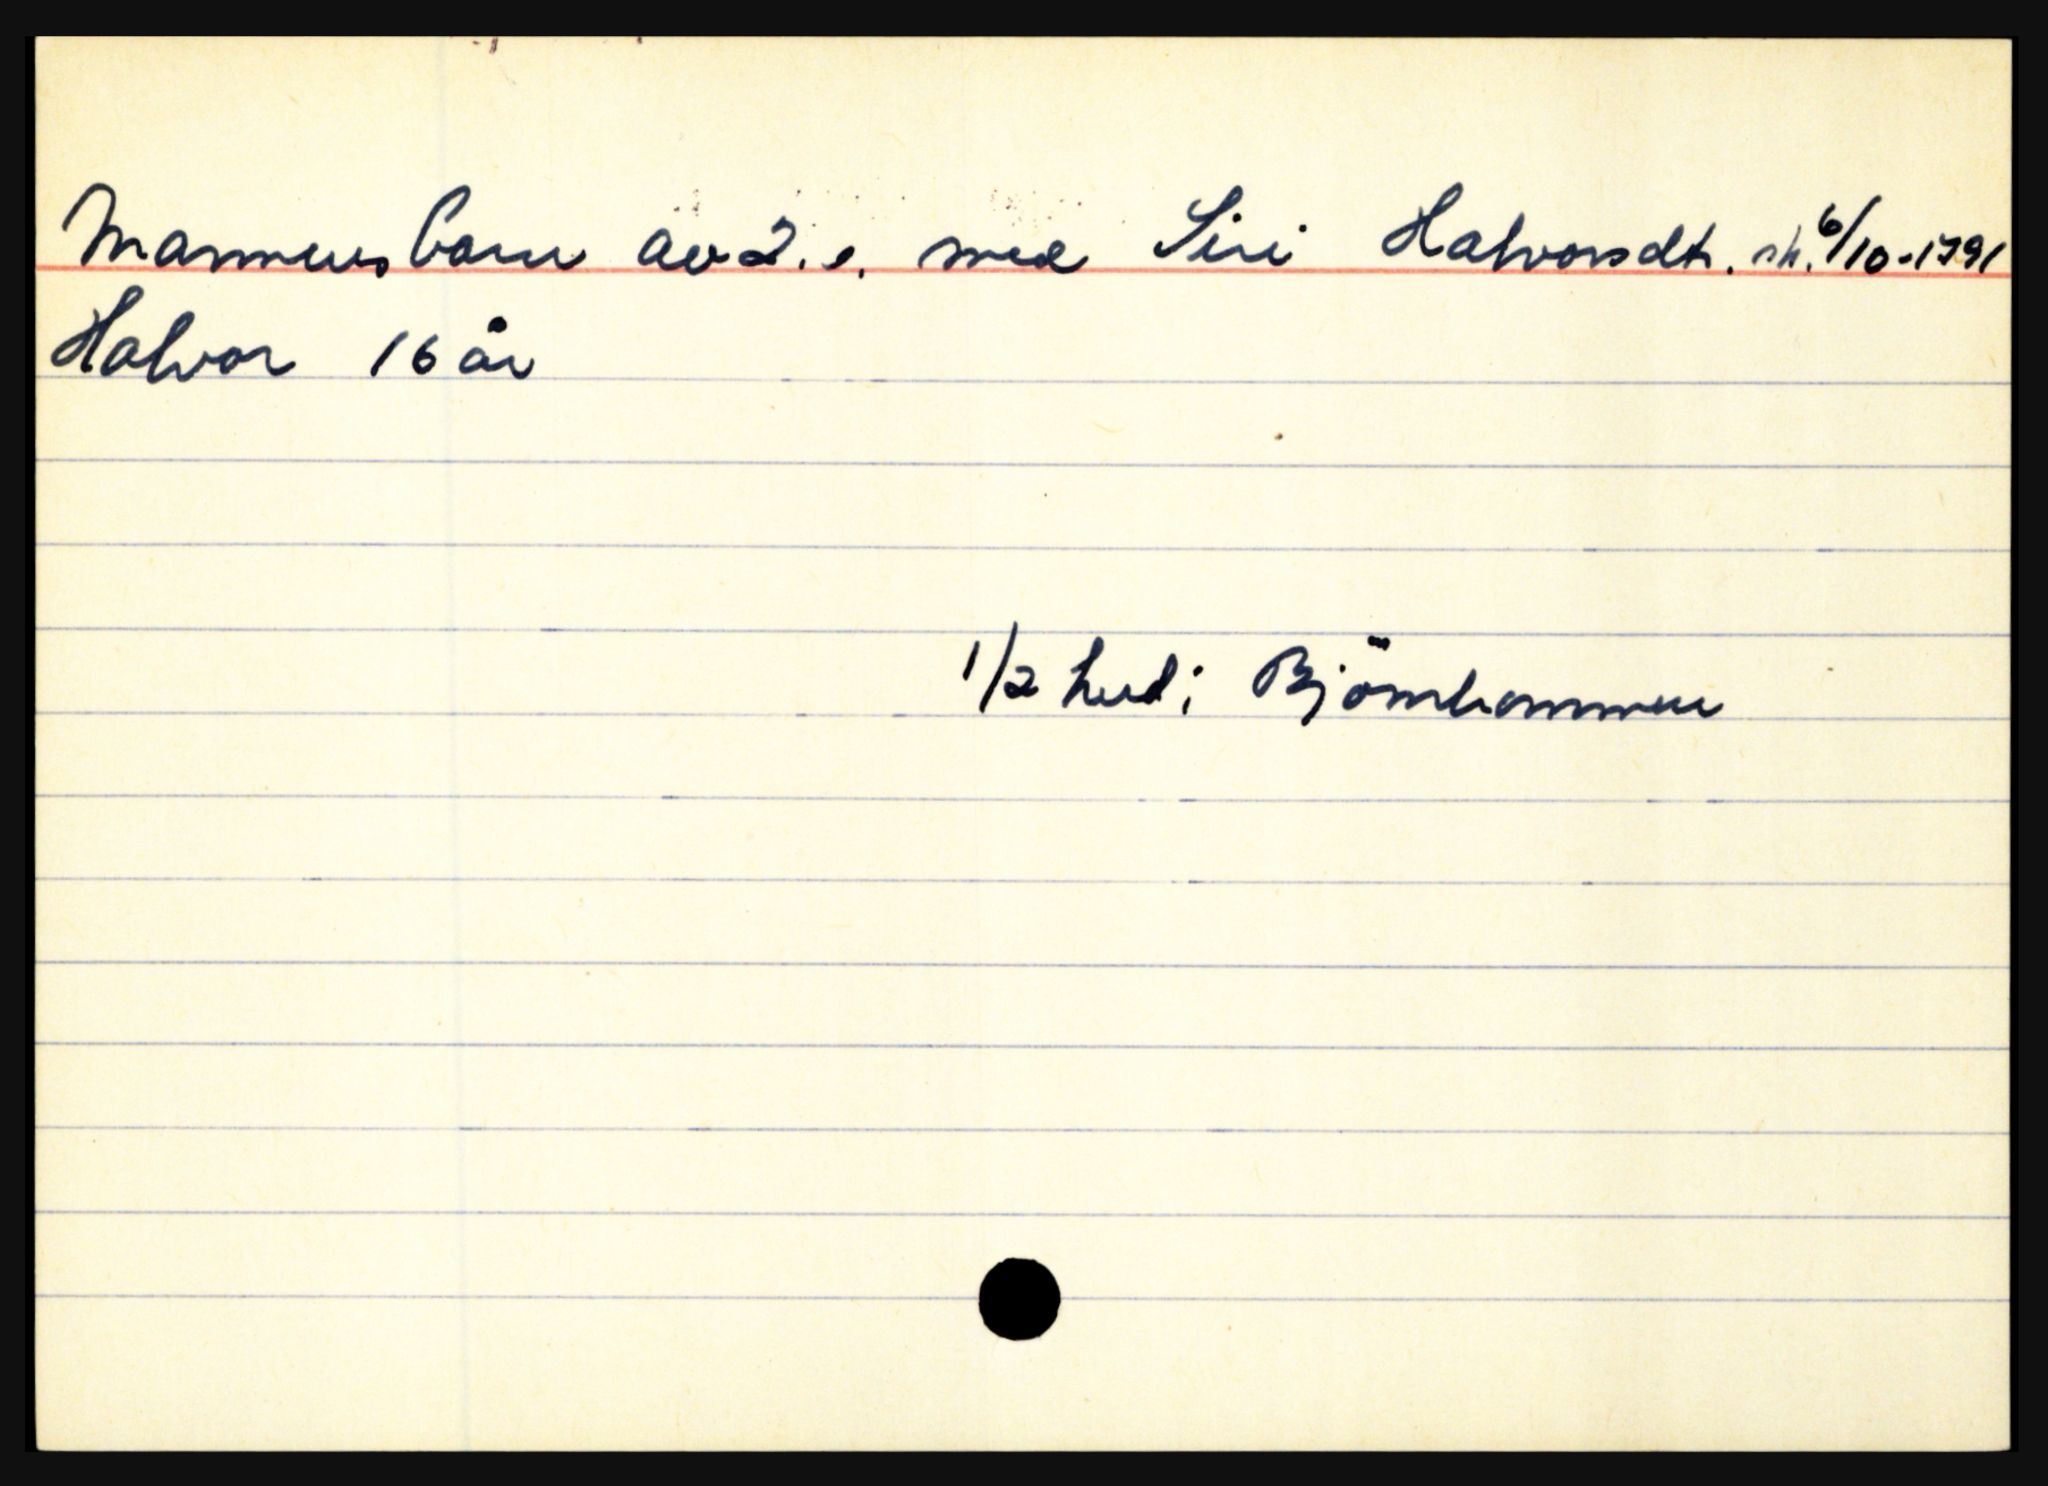 Mannens barn av 2. e. med Siri Halvorsdtr. sk. 6/10-1791
Halvor 16 år
1/2 hud i Björnhammen